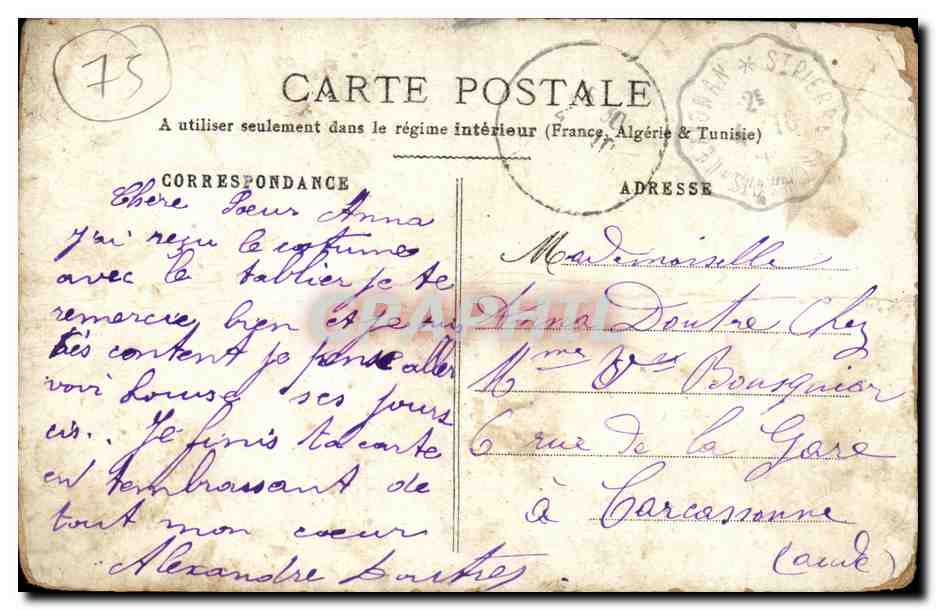 75
CARTE POSTALE
A utiliser seulement dans le régime intérieur (France, Algérie & Tunisie)
CORRESPONDANCE
Chere Soeur Anna
j'ai reçu le costume
avec le tablier je te
remercie bien et je suis
très content je pense aller
voir Louise ses jours
cis.. Je finis ta carte
en tembrassant de
tout mon cœur
Alexandre Doutres
ADRESSE
Mademoiselle
Anna Doutre Chez
Mme Vve Bousquier
6 rue de la Gare
à Carcassonne
(aude)
ST PIERRE
GRAPHTL